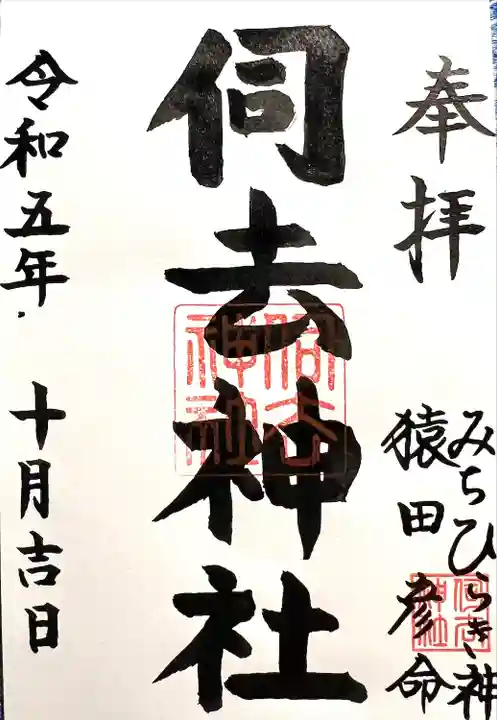 奉拝
みちひらき神
猿田彦命
伺去神社
伺去神社
伺去神社
令和五年 十月吉日